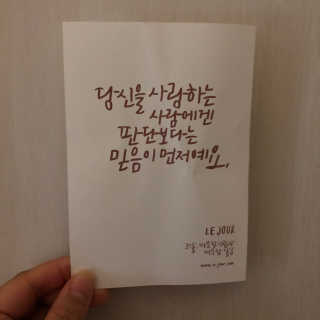 당신을 사랑하는
사람에겐
판단보다는
믿음이 먼저예요.
LE JOUR